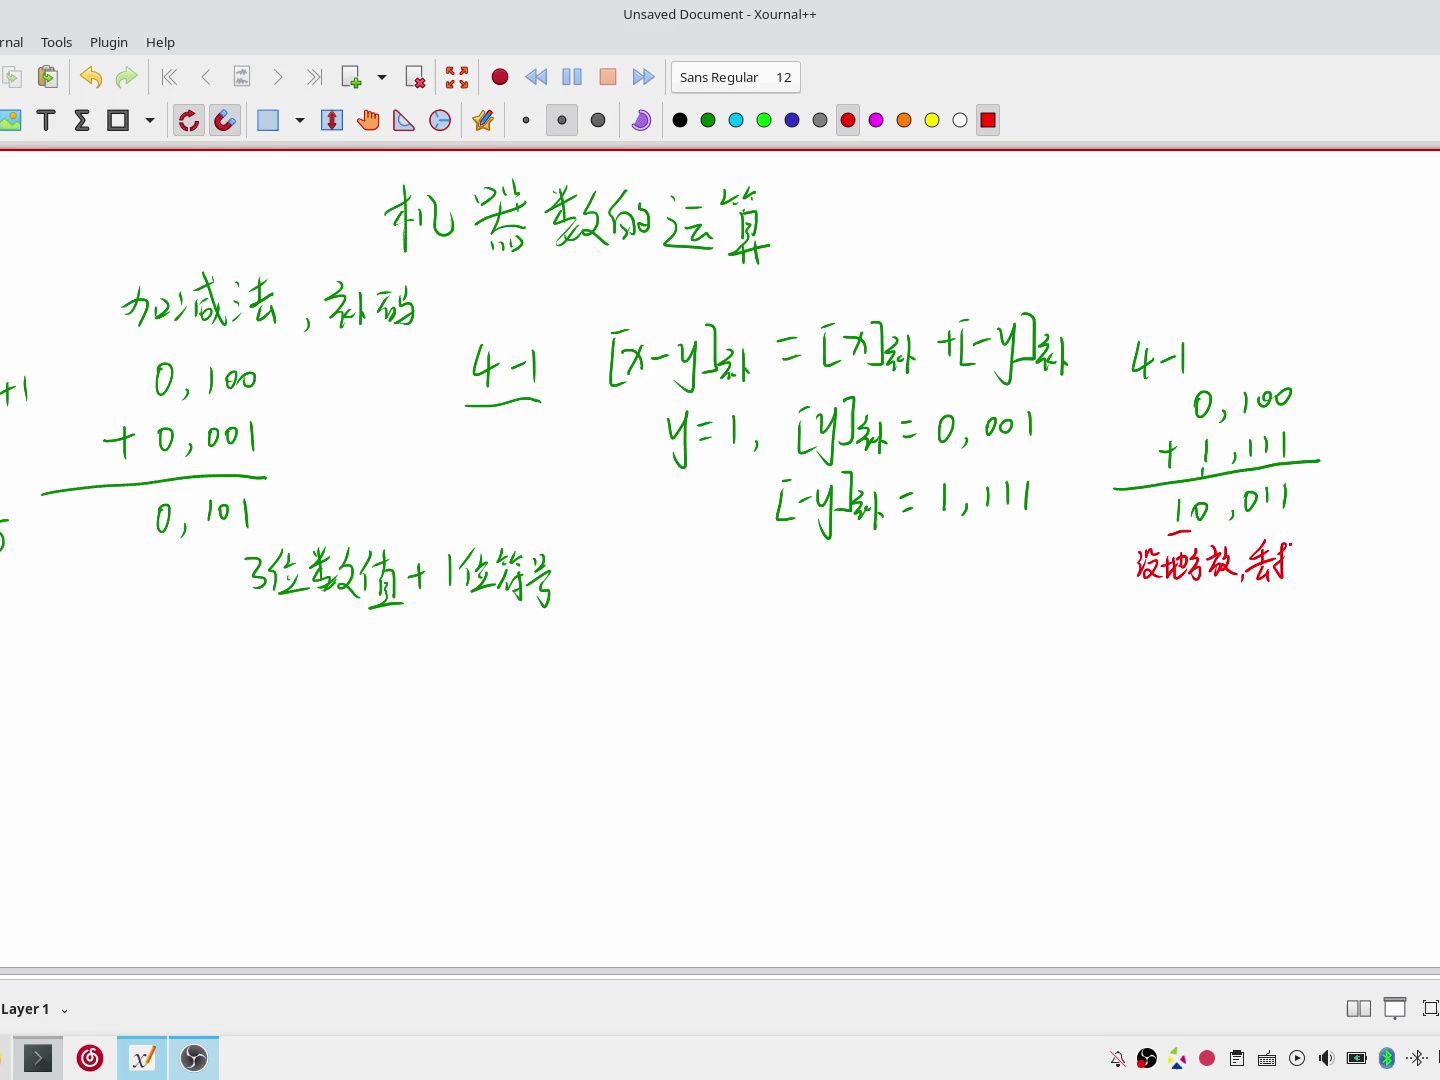 Unsaved Document - Xournal++
rnal Tools Plugin Help
Sans Regular 12
机器数的运算
加减法,补码
+1
0,100
+ 0,001
0,101
3位数值+1位符号
4-1
[x-y]补 = [x]补 +[-y]补
y=1, [y]补 = 0,001
[-y]补 = 1,111
4-1
0,100
+ 1,111
10,011
没地方放,丢
Layer 1